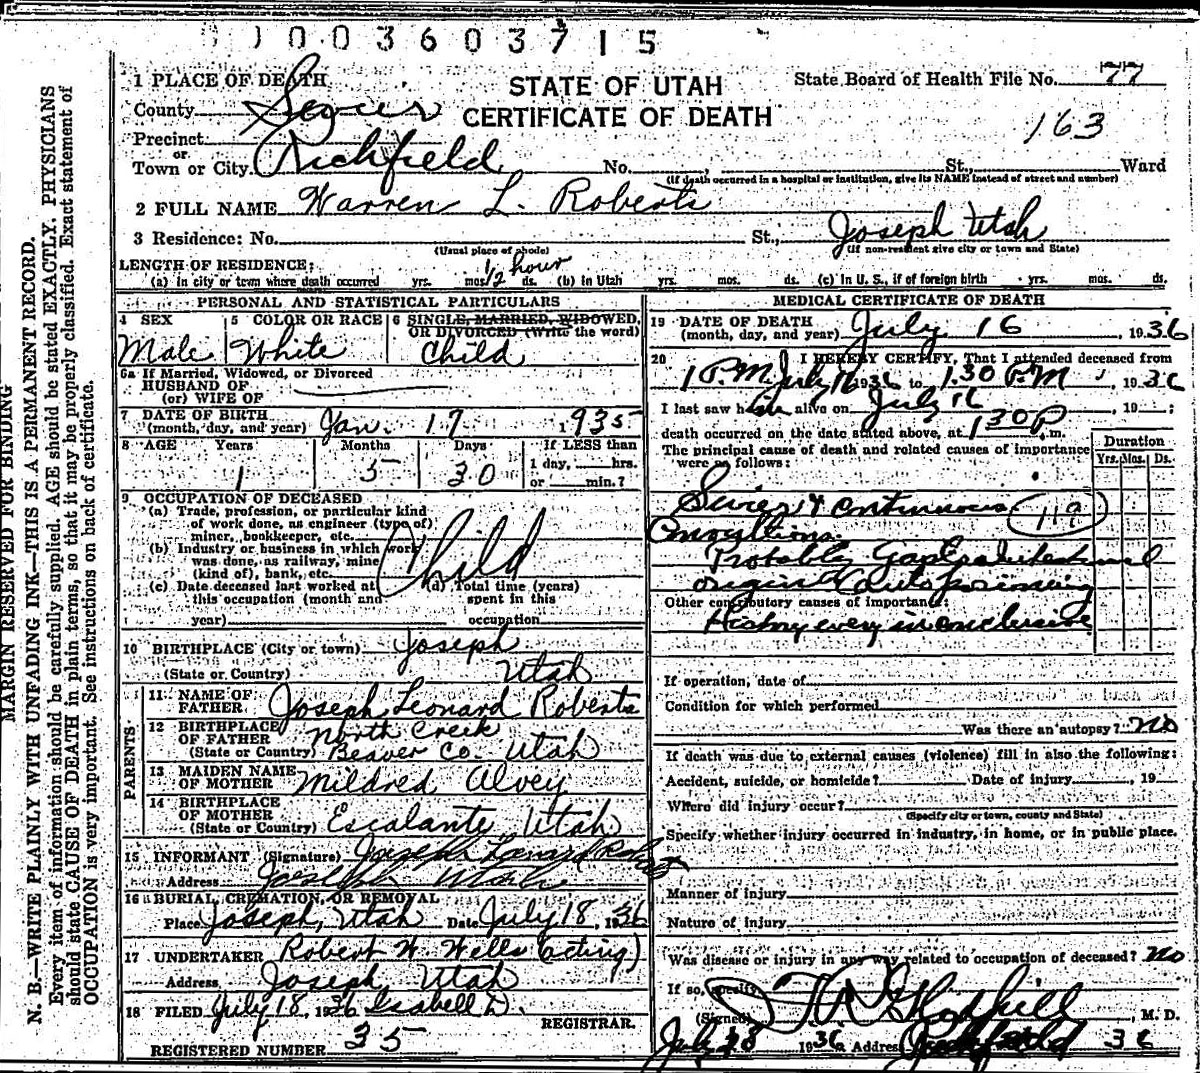 1003603715
1 PLACE OF DEATH
STATE OF UTAH
CERTIFICATE OF DEATH
State Board of Health File No. 77
163
County Sevier
Precinct
or
Town or City Richfield No. St., Ward
(If death occurred in a hospital or institution, give its NAME instead of street and number)
2 FULL NAME Warren L. Roberts
3 Residence: No. St., Joseph Utah
(Usual place of abode) (If non-resident give city or town and State)
LENGTH OF RESIDENCE: 1/2 hour
(a) in city or town where death occurred yrs. mos. ds. (b) in Utah yrs. mos. ds. (c) in U. S., if of foreign birth yrs. mos. ds.
PERSONAL AND STATISTICAL PARTICULARS
4 SEX Male
5 COLOR OR RACE White
6 SINGLE, MARRIED, WIDOWED,
OR DIVORCED (Write the word)
Child
6a If Married, Widowed, or Divorced
HUSBAND OF
(or) WIFE OF
7 DATE OF BIRTH
(month, day, and year) Jan. 17 1935
8 AGE Years Months Days If LESS than
1 5 30 1 day, hrs.
or min.?
9 OCCUPATION OF DECEASED
(a) Trade, profession, or particular kind
of work done, as engineer (type of)
miner, bookkeeper, etc.
Child
(b) Industry or business in which work
was done, as railway, mine
(kind of), bank, etc.
(c) Date deceased last worked at (d) Total time (years)
this occupation (month and spent in this
year) occupation
10 BIRTHPLACE (City or town) Joseph
(State or Country) Utah
PARENTS
11 NAME OF
FATHER Joseph Leonard Roberts
12 BIRTHPLACE
OF FATHER North Creek
(State or Country) Beaver Co. Utah
13 MAIDEN NAME
OF MOTHER Mildred Alvey
14 BIRTHPLACE
OF MOTHER
(State or Country) Escalante, Utah
15 INFORMANT (Signature) Joseph Leonard Roberts
Address Joseph Utah
16 BURIAL, CREMATION, OR REMOVAL
Place Joseph, Utah Date July 18, 1936
17 UNDERTAKER Robert W. Wells (acting)
Address Joseph Utah
18 FILED July 18, 1936 Isabell D.
REGISTRAR.
REGISTERED NUMBER 35
MEDICAL CERTIFICATE OF DEATH
19 DATE OF DEATH
(month, day, and year) July 16 1936
20 I HEREBY CERTIFY, That I attended deceased from
1 P.M. July 16 1936 to 1.30 P.M, 1936
I last saw him alive on July 16, 19 ;
death occurred on the date stated above, at 1 30 P.m.
The principal cause of death and related causes of importance
were as follows:
Duration
Yrs. Mos. Ds.
& continuous 119
Convultions.
Probably
origin (auto poisoning
Other contributory causes of importance:
History very inconclusive
If operation, date of
Condition for which performed
Was there an autopsy? No
If death was due to external causes (violence) fill in also the following:
Accident, suicide, or homicide? Date of injury, 19
Where did injury occur?
(Specify city or town, county and State)
Specify whether injury occurred in industry, in home, or in public place.
Manner of injury
Nature of injury
Was disease or injury in any way related to occupation of deceased? No
If so, specify
(Signed) , M. D.
July 18 1936 Address Richfield 36
MARGIN RESERVED FOR BINDING
N. B.—WRITE PLAINLY WITH UNFADING INK—THIS IS A PERMANENT RECORD.
Every item of information should be carefully supplied. AGE should be stated EXACTLY. PHYSICIANS
should state CAUSE OF DEATH in plain terms, so that it may be properly classified. Exact statement of
OCCUPATION is very important. See instructions on back of certificate.